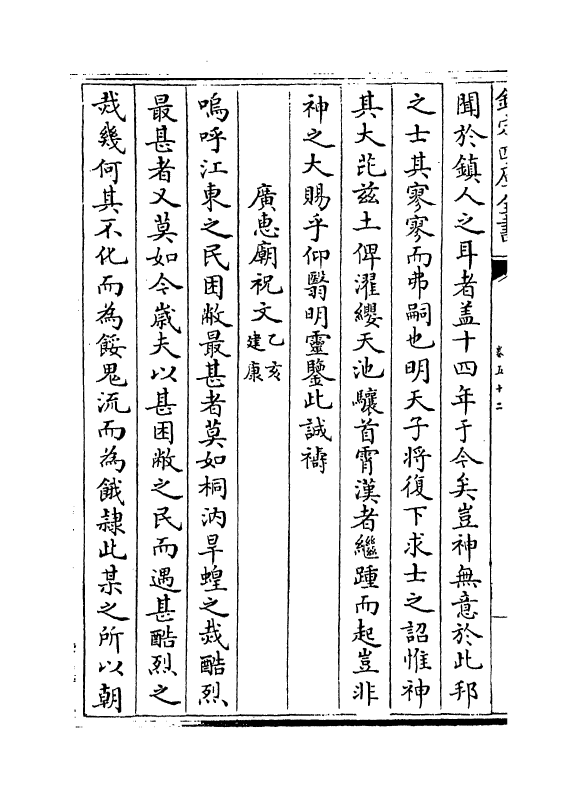 欽定四庫全書
卷五十二
聞於鎮人之耳者盖十四年于今矣豈神無意於此邦
之士其寥寥而弗嗣也明天子将復下求士之詔惟神
其大芘兹土俾濯纓天池驤首霄漢者繼踵而起豈非
神之大賜乎仰翳明靈鑒此誠禱
廣惠廟祝文乙亥建康
嗚呼江東之民困敝最甚者莫如桐汭旱蝗之烖酷烈
最甚者又莫如今嵗夫以甚困敝之民而遇甚酷烈之
烖幾何其不化而為餒鬼流而為餓隷此某之所以朝